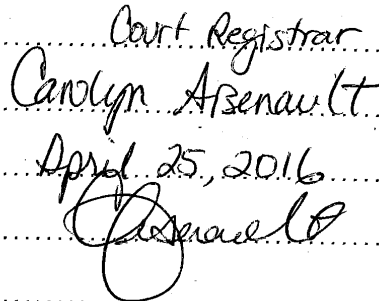 Court Registrar
Carolyn Arsenault
April 25, 2016
CArsenault